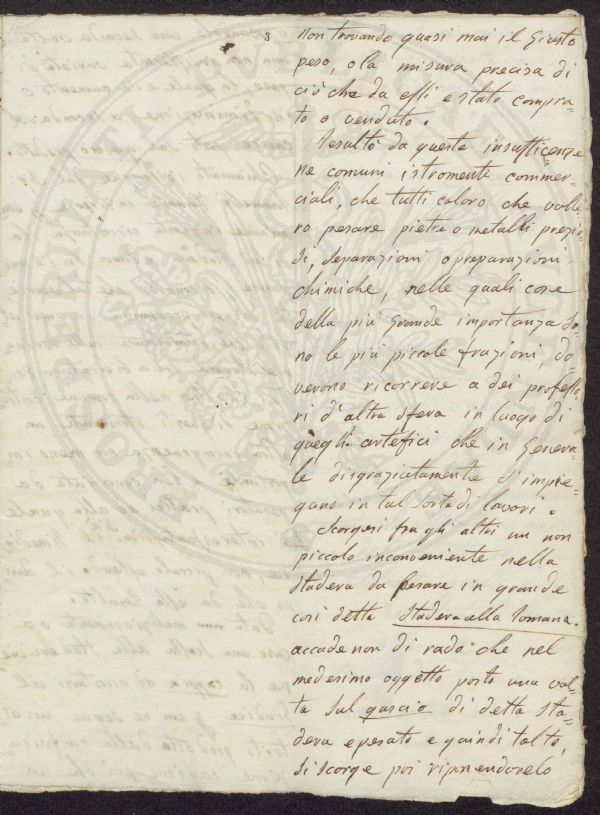 3
non trovando quasi mai il giusto
peso, o la misura precisa di
ciò che da essi è stato compra-
to o venduto.
Resultò da queste insufficenze
ne comuni istromenti commer-
ciali, che tutti coloro che volle-
ro pesare pietre o metalli prezio-
si, separazioni o preparazioni
chimiche, nelle quali cose
della più grande importanza so-
no le più piccole frazioni, do-
verono ricorrere a dei professo-
ri d'altra sfera in luogo di
quegli artefici che in Genera-
le disgraziatamente s'impie-
gano in tal sorta di lavori.
Scorgesi fra gli altri un non
piccolo inconveniente nella
stadera da pesare in grande
così detta stadera alla Romana.
accade non di rado che nel
medesimo oggetto posto una vol-
ta sul di detta sta-
dera e pesato e quindi tolto,
si scorge poi riponendovelo